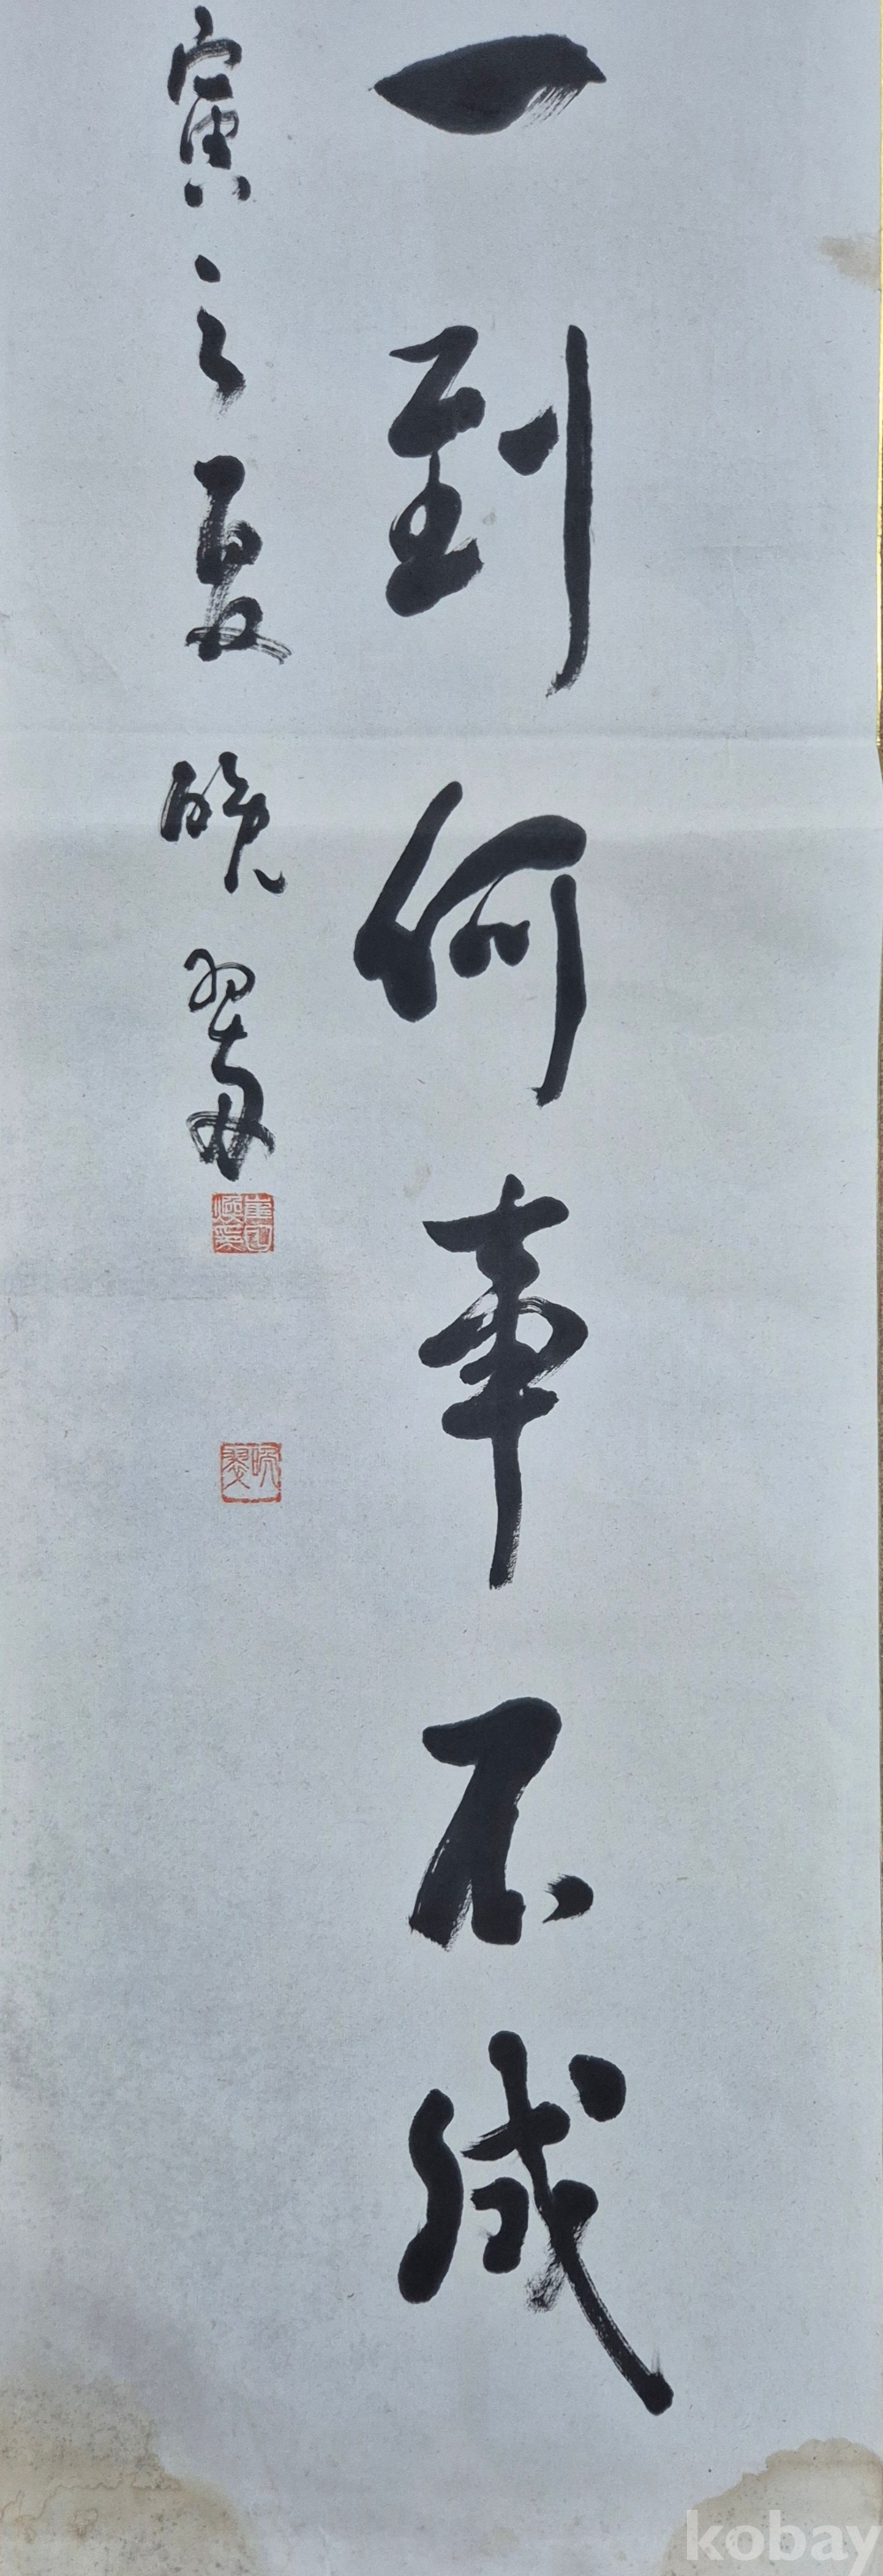 一到何事不成
寅之夏 晩翠
晩翠
kobay